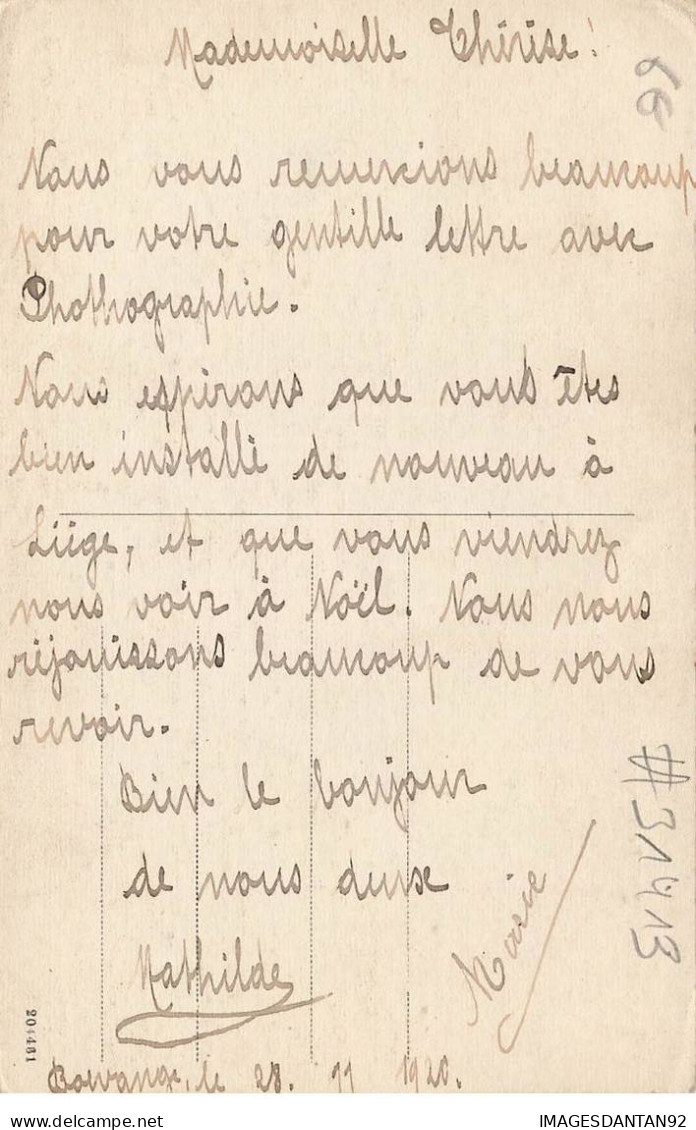 Mademoiselle Thérèse!
66
Nous vous remercions beaucoup
pour votre gentille lettre avec
Phothographie.
Nous espérons que vous êtes
bien installé de nouveau à
Liége, et que vous viendrez
nous voir à Noël. Nous nous
réjouissons beaucoup de vous
revoir.
Bien le bonjour
de nous deux
Mathilde
Marie
#31413
204481
le 28. 11 1920.
IMAGESDANTAN92